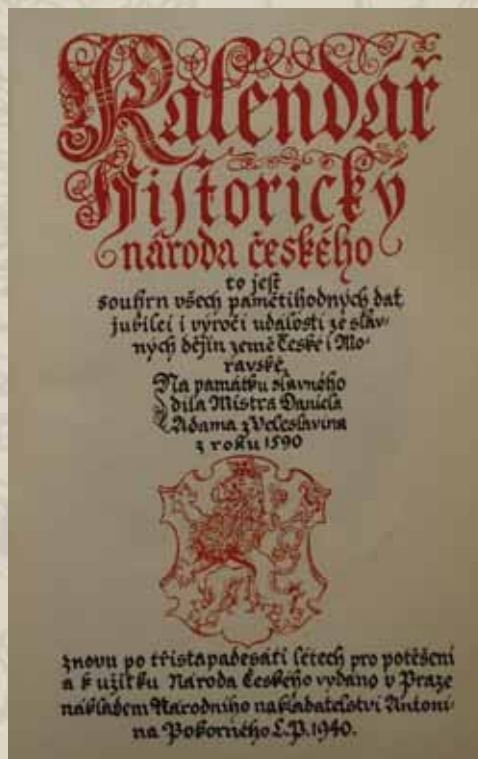 Kalendář
Historický
národa českého
to jest
souhrn všech pamětihodných dat,
jubileí i výročí událostí ze slav-
ných dějin země České i Mo-
ravské.
Na památku slavného
díla Mistra Daniela
Adama z Veleslavína
z roku 1590
znovu po třistapadesáti letech pro potěšení
a k užitku Národa Českého vydáno v Praze
nákladem Národního nakladatelství Antoní-
na Pokorného L.P. 1940.